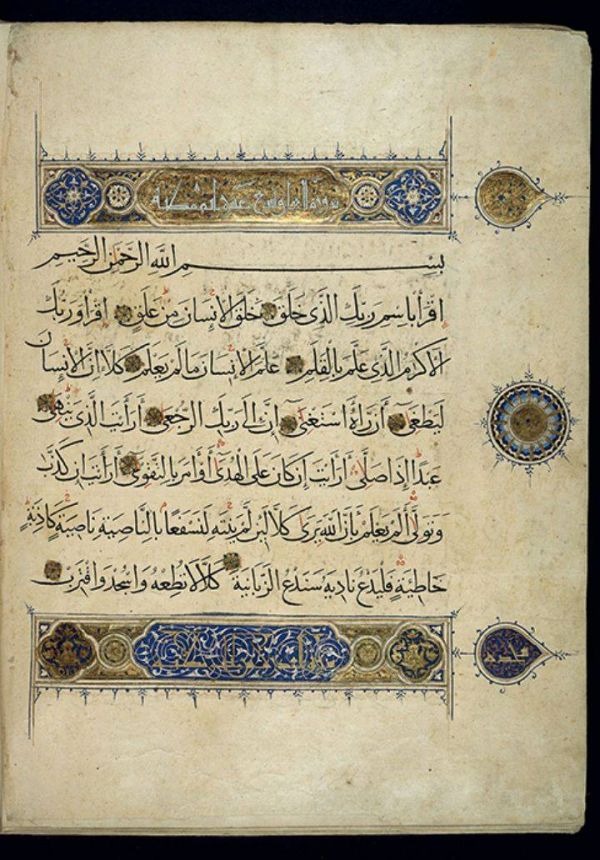 بِسْمِ اللَّهِ الرَّحْمَنِ الرَّحِيمِ
اقْرَأْ بِاسْمِ رَبِّكَ الَّذِي خَلَقَ خَلَقَ الْإِنْسَانَ مِنْ عَلَقٍ اقْرَأْ وَرَبُّكَ
الْأَكْرَمُ الَّذِي عَلَّمَ بِالْقَلَمِ عَلَّمَ الْإِنْسَانَ مَا لَمْ يَعْلَمْ كَلَّا إِنَّ الْإِنْسَانَ
لَيَطْغَى أَنْ رَآهُ اسْتَغْنَى إِنَّ إِلَى رَبِّكَ الرُّجْعَى أَرَأَيْتَ الَّذِي يَنْهَى
عَبْدًا إِذَا صَلَّى أَرَأَيْتَ إِنْ كَانَ عَلَى الْهُدَى أَوْ أَمَرَ بِالتَّقْوَى أَرَأَيْتَ إِنْ كَذَّبَ
وَتَوَلَّى أَلَمْ يَعْلَمْ بِأَنَّ اللَّهَ يَرَى كَلَّا لَئِنْ لَمْ يَنْتَهِ لَنَسْفَعًا بِالنَّاصِيَةِ نَاصِيَةٍ كَاذِبَةٍ
خَاطِئَةٍ فَلْيَدْعُ نَادِيَهُ سَنَدْعُ الزَّبَانِيَةَ كَلَّا لَا تُطِعْهُ وَاسْجُدْ وَاقْتَرِبْ